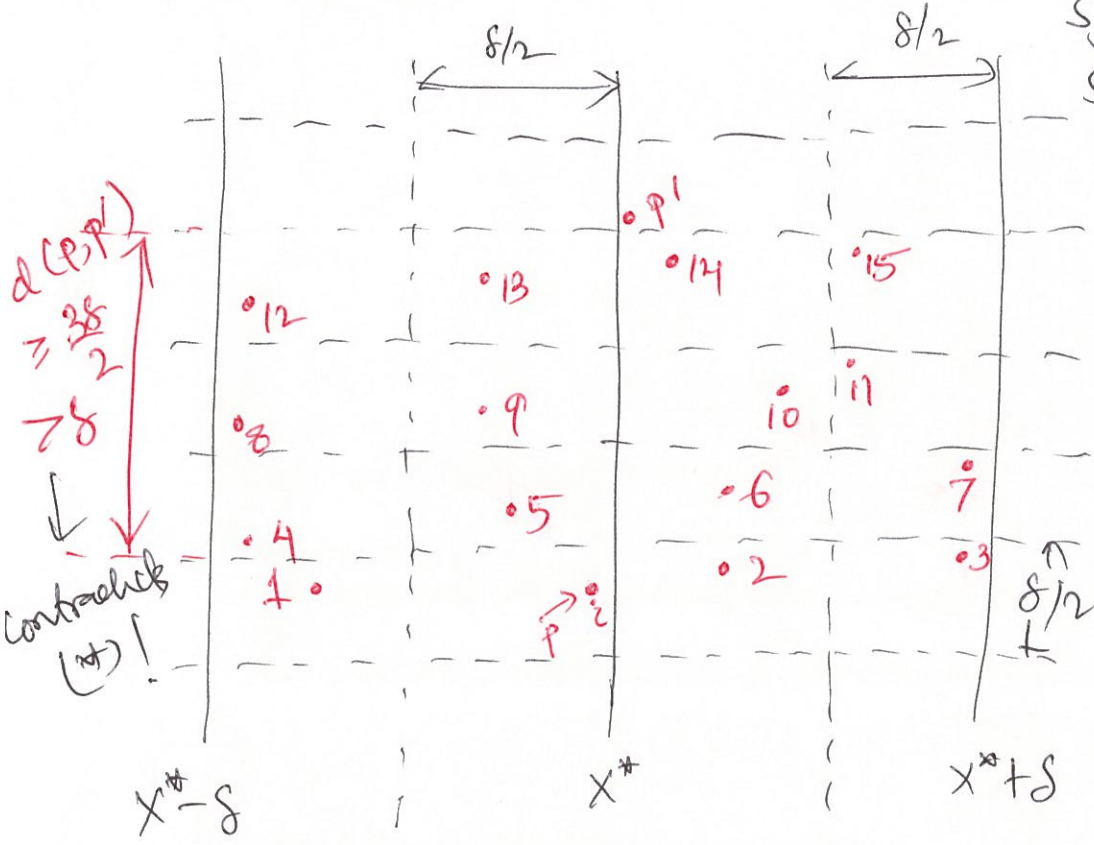 δ/2
δ/2
S
S
p'
d(p,p')
≥ 3δ/2
>δ
contradicts
(*)!
14
15
12
13
11
10
9
8
7
6
5
4
3
2
1
p → i
δ/2
x*-δ
x*
x*+δ